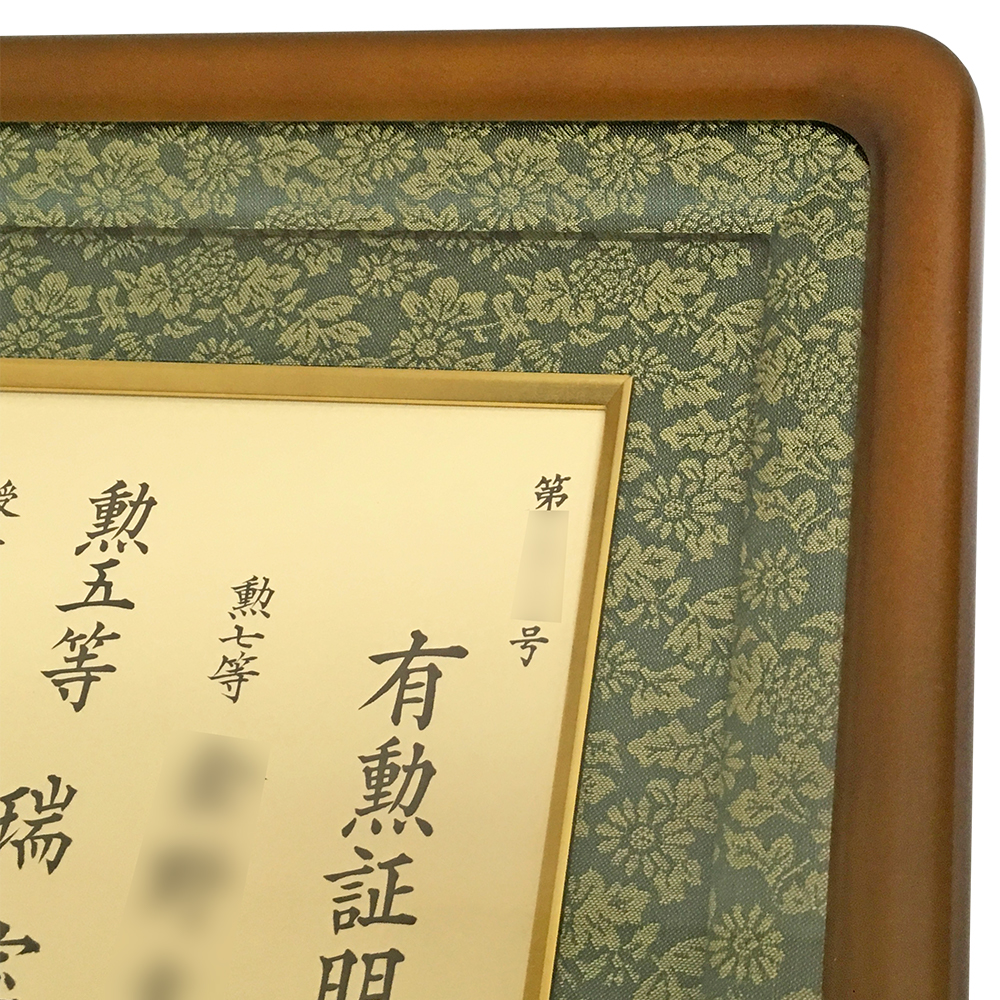 第 号
有勲証明
勲七等
勲五等
瑞宝
授